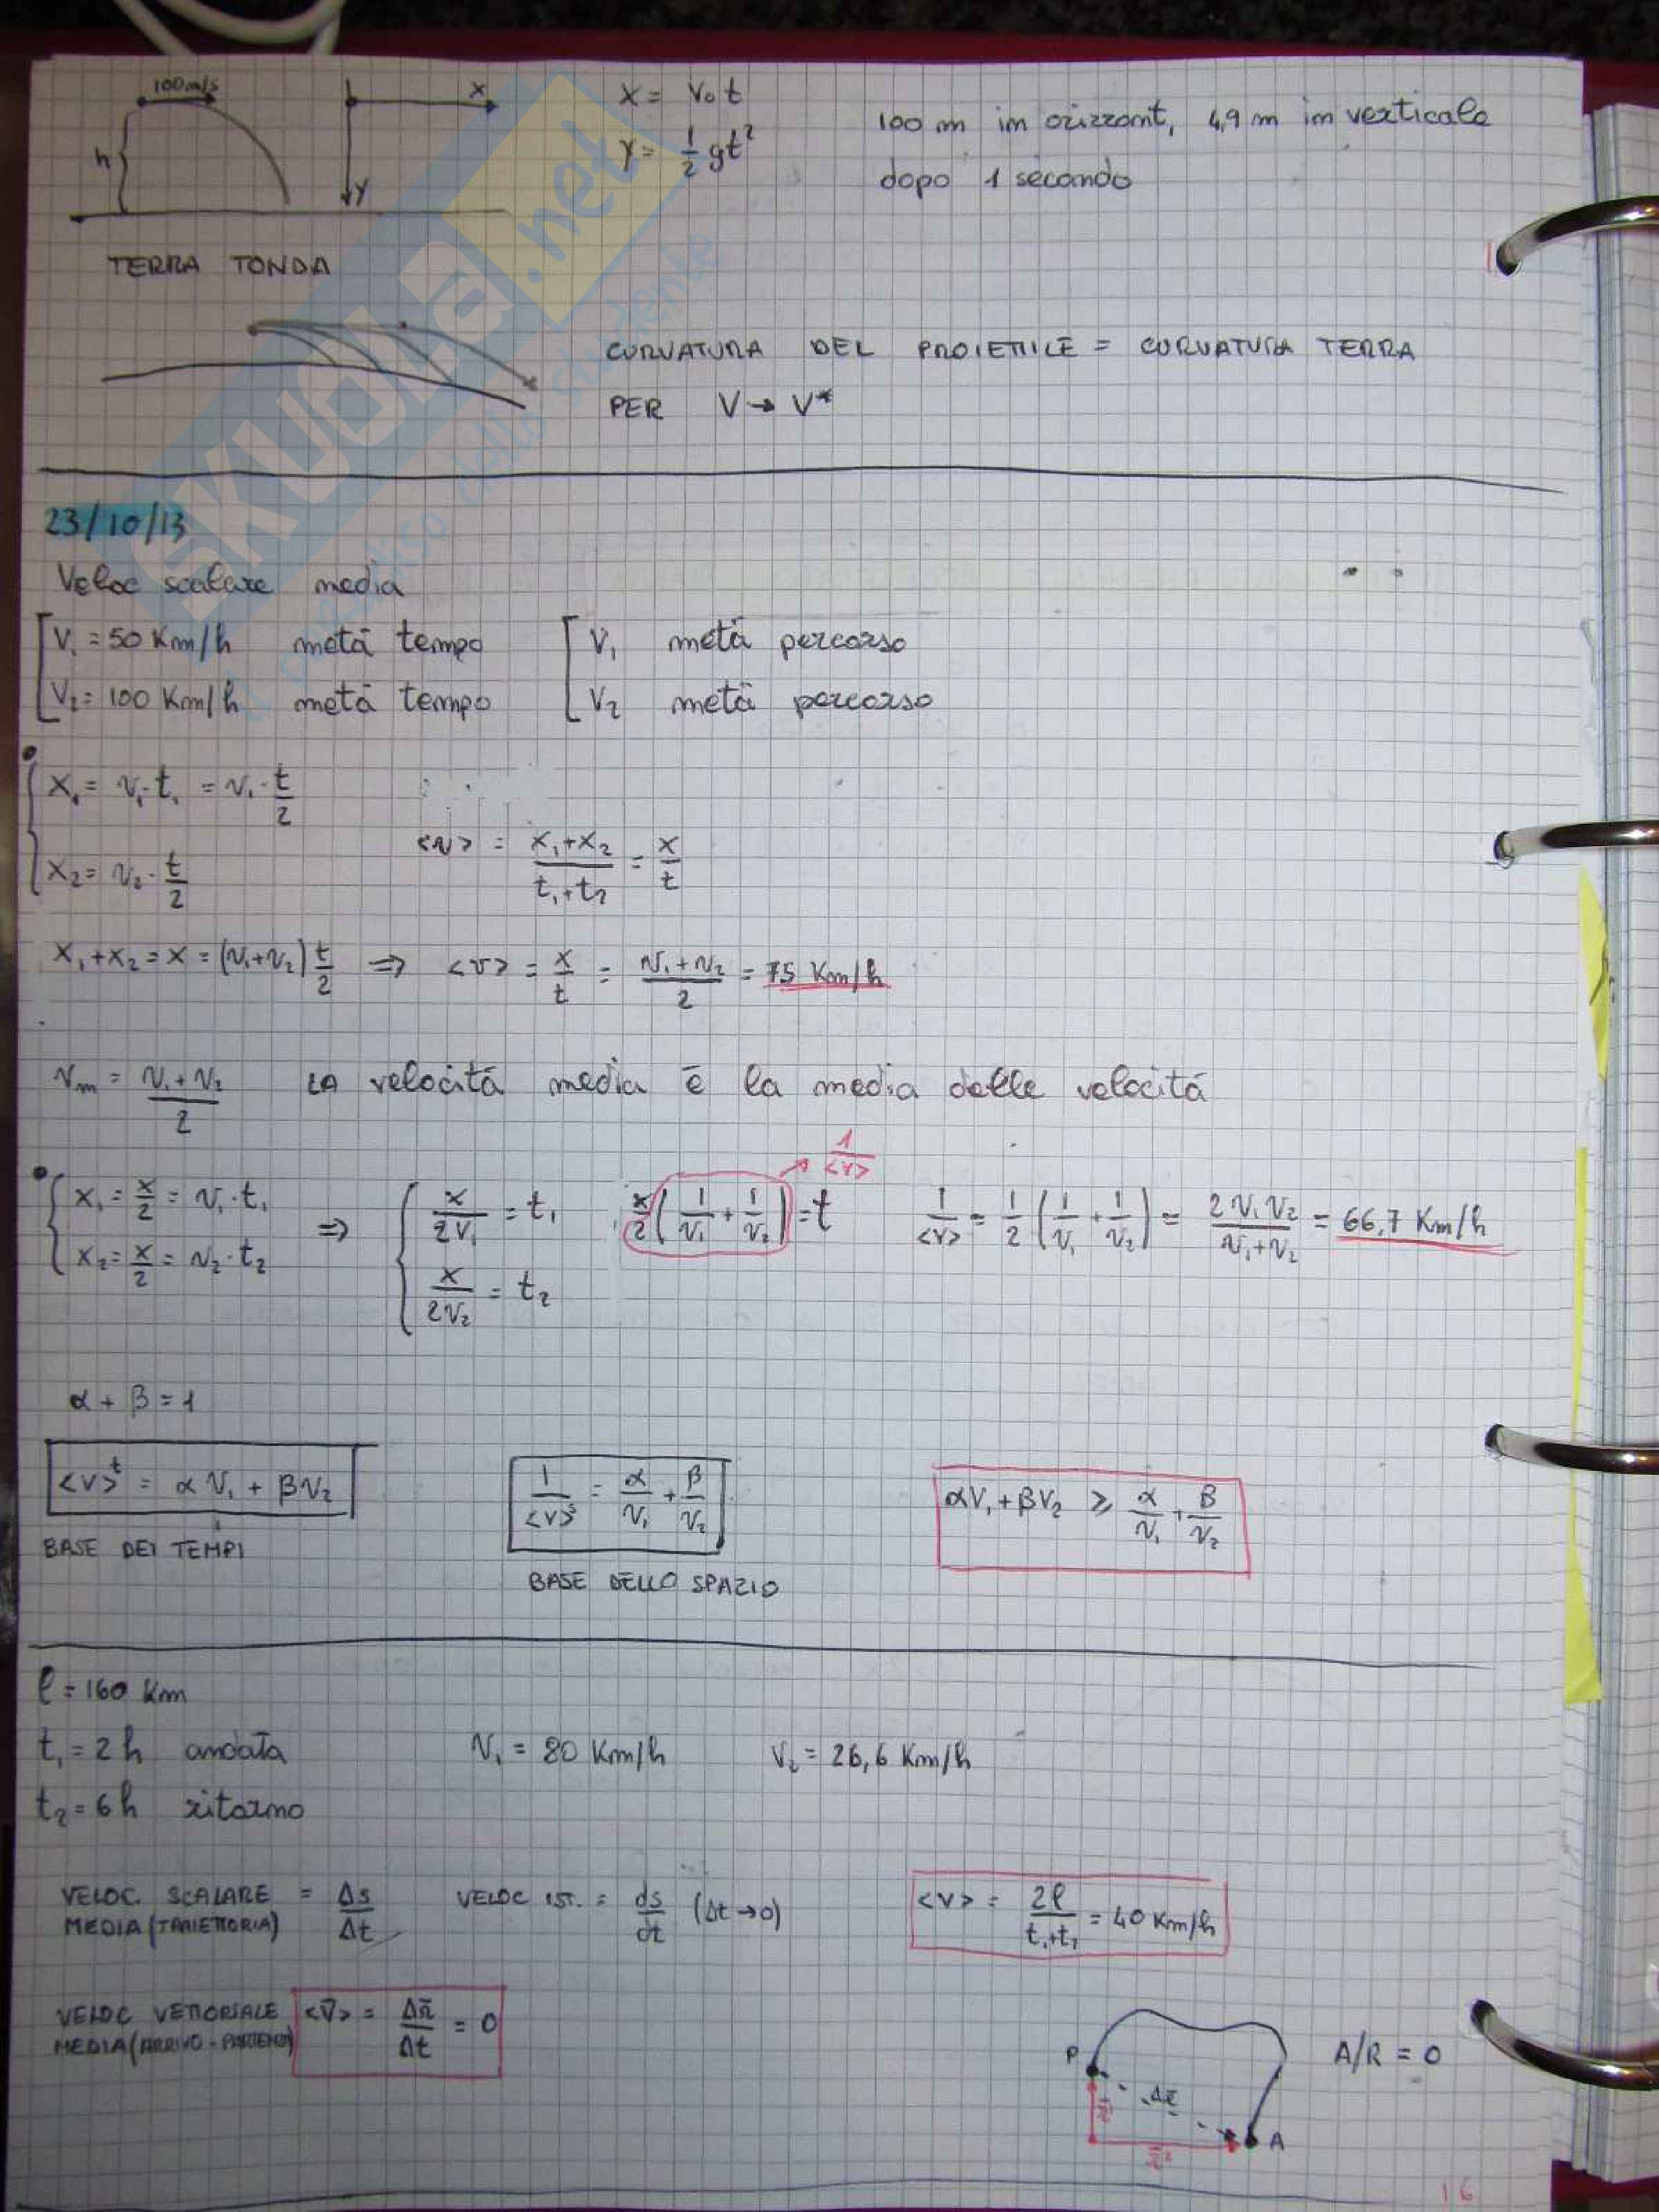 100 m/s
x
h
y
x = v₀ t
y = 1/2 gt²
100 m in orizzont, 4,9 m in verticale
dopo 1 secondo
TERRA TONDA
CURVATURA DEL PROIETTILE = CURVATURA TERRA
PER V → V*
23/10/13
Veloc scalare media
V₁ = 50 Km/h metà tempo
V₂ = 100 Km/h metà tempo
V₁ metà percorso
V₂ metà percorso
x₁ = v₁·t₁ = v₁·t/2
x₂ = v₂·t/2
<v> = (x₁+x₂)/(t₁+t₂) = x/t
x₁+x₂ = x = (v₁+v₂) t/2 ⇒ <v> = x/t = (v₁+v₂)/2 = 75 Km/h
vm = (v₁+v₂)/2 LA velocità media è la media delle velocità
x₁ = x/2 = v₁·t₁
x₂ = x/2 = v₂·t₂
⇒
x/2v₁ = t₁
x/2v₂ = t₂
x/2 (1/v₁ + 1/v₂) = t
1/<v>
1/<v> = 1/2 (1/v₁ + 1/v₂) = 2v₁v₂/(v₁+v₂) = 66,7 Km/h
α + β = 1
<v>ᵗ = αv₁ + βv₂
BASE DEI TEMPI
1/<v>ˢ = α/v₁ + β/v₂
BASE DELLO SPAZIO
αV₁ + βV₂ ⩾ α/v₁ + β/v₂
ℓ = 160 Km
t₁ = 2 h andata
v₁ = 80 Km/h
v₂ = 26,6 Km/h
t₂ = 6 h ritorno
VELOC. SCALARE MEDIA (TRAIETTORIA) = Δs/Δt
VELOC IST. = ds/dt (Δt → 0)
<v> = 2ℓ/(t₁+t₂) = 40 Km/h
VELOC VETTORIALE
MEDIA (ARRIVO - PARTENZA)
<v̄> = Δr̄/Δt = 0
P
Δr̄
A
A/R = 0
16
SKUOLA.net